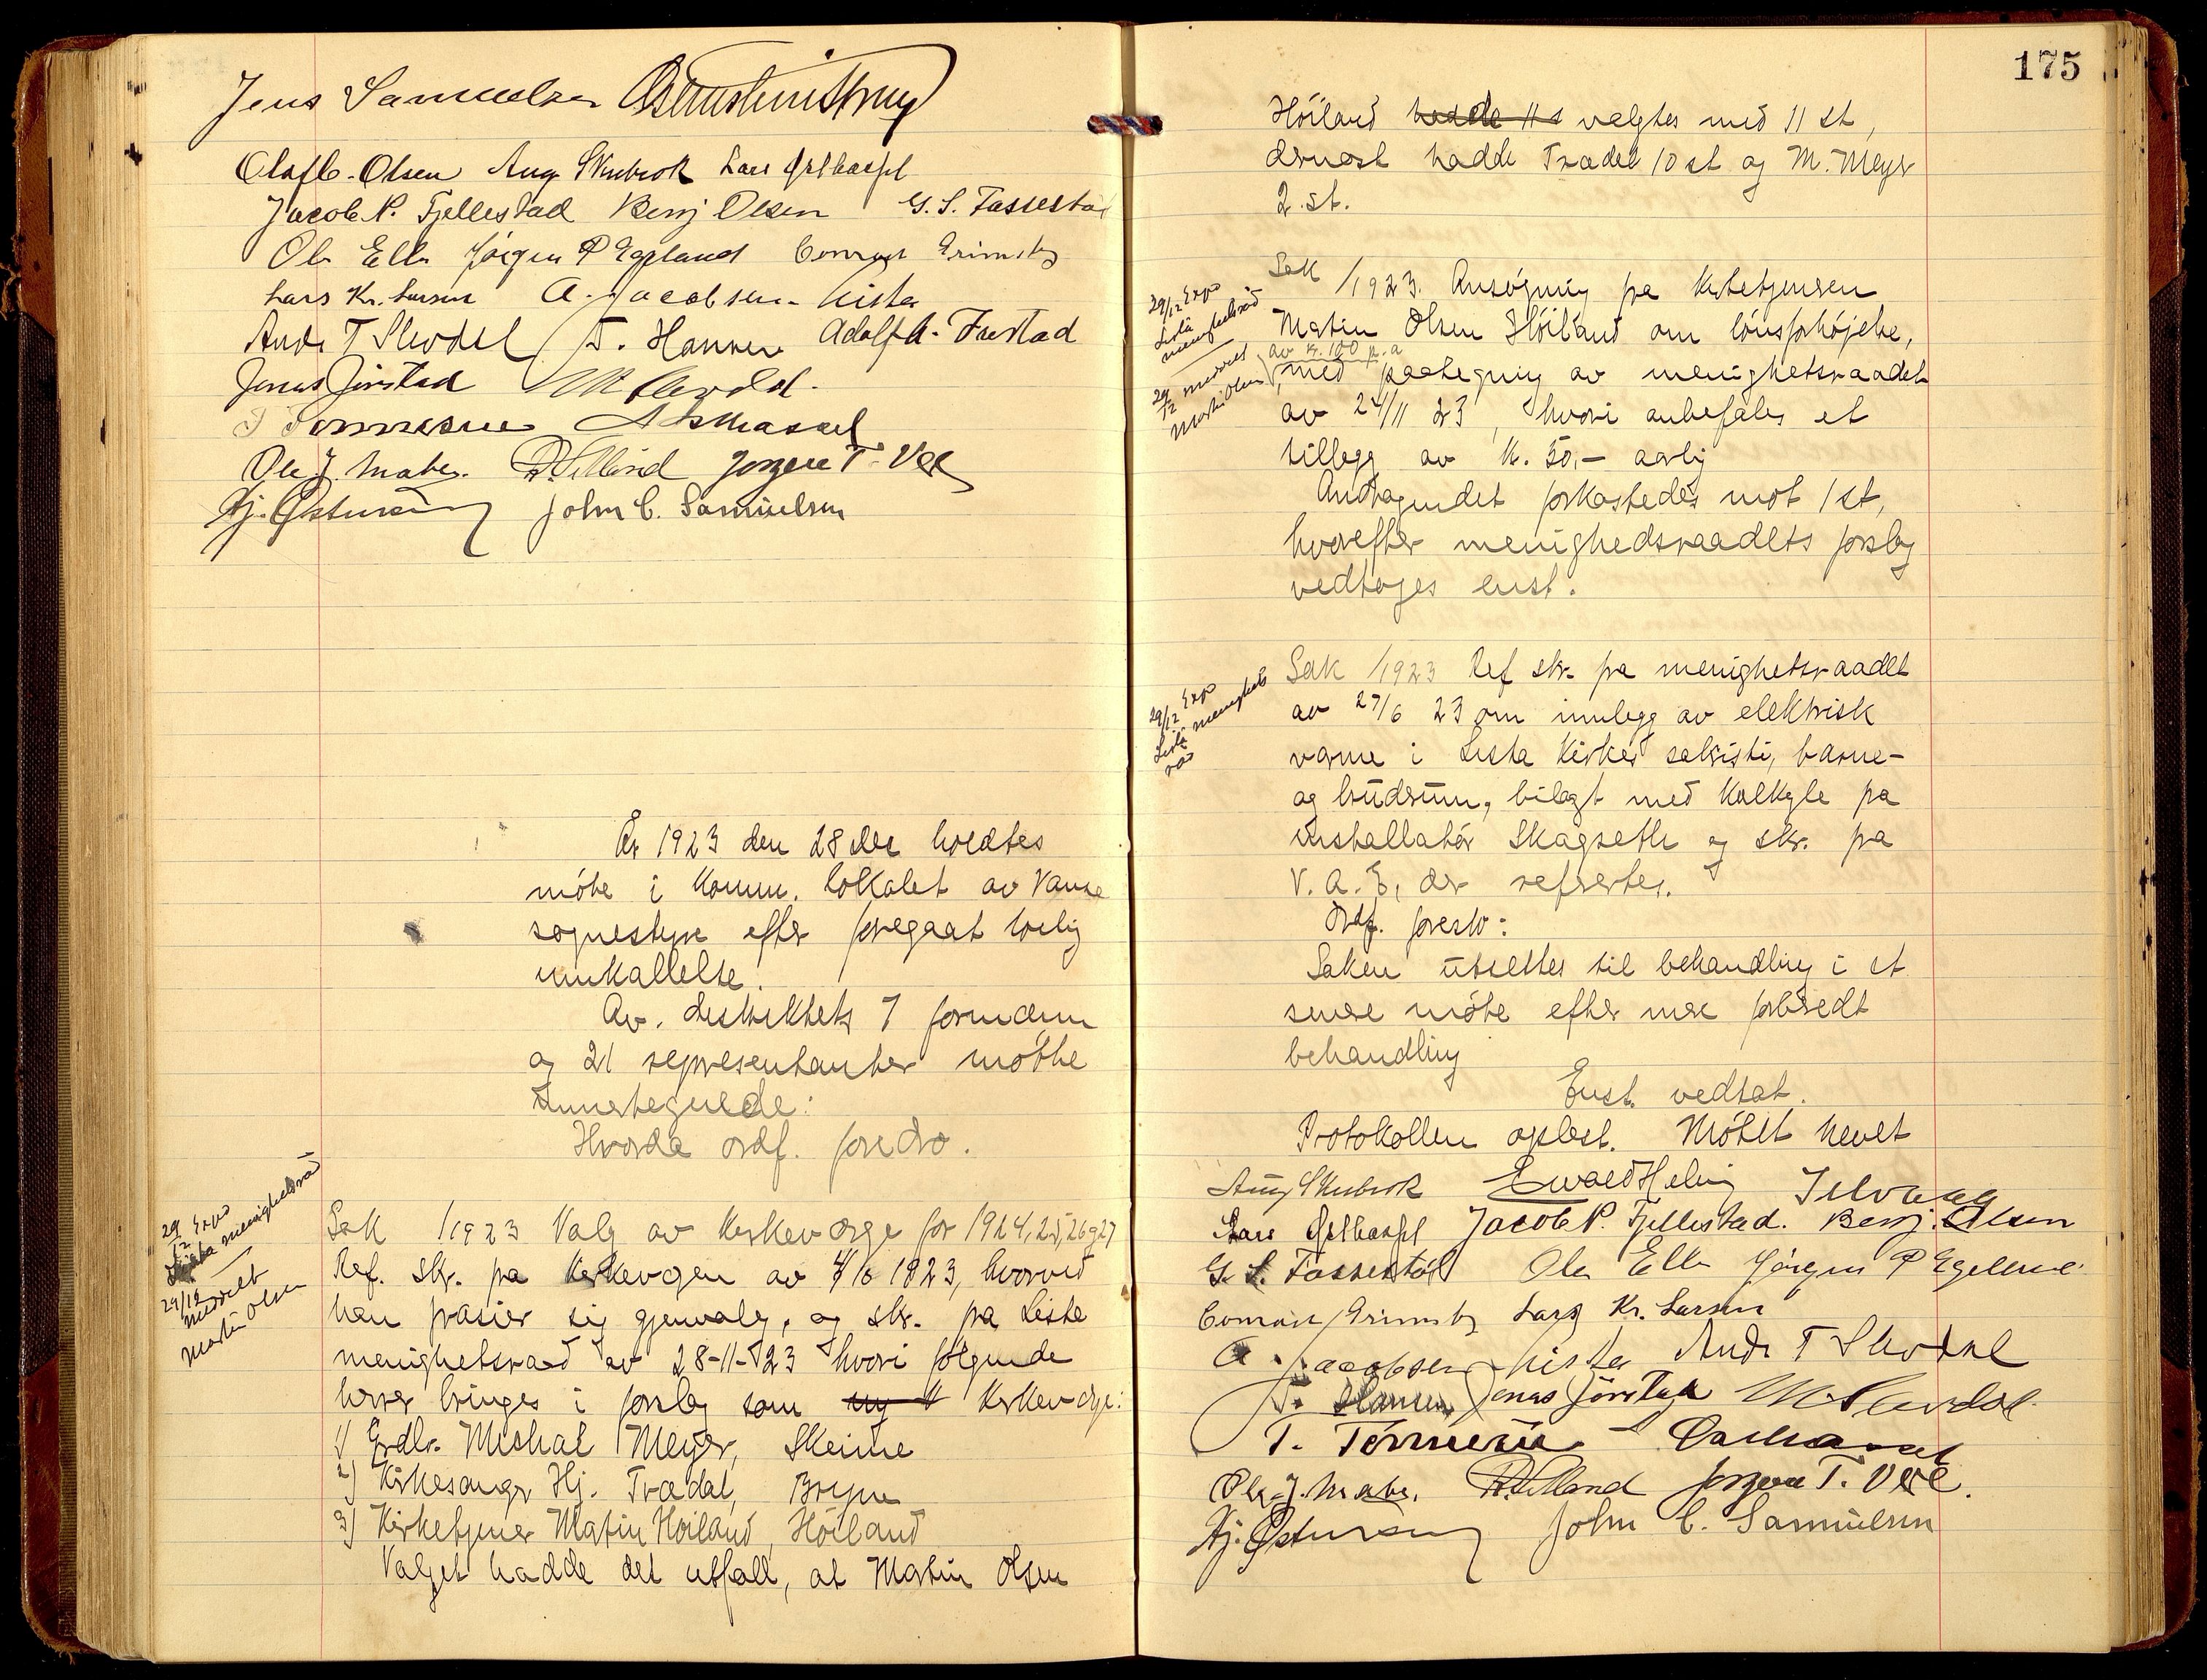 Jens Samuelsen
Olaf C. Olsen Aug Skubrok Lars
Jacob N. Fjellestad Benj Olsen G. S. Tassestad
Ole Elle Jörgen P Egeland Conrad Grimsby
Lars Kr. Larsen A. Jacobsen Lista
Andr T Slevdal T. Hansen Adolf A. Frestad
Jonas Jörstad M Slevdal.
T Tönnesen
Ole J. Mabe. Jörgen T. Vee
Hj. John C. Samuelsen
År 1923 den 28 des holdtes
möte i Komm. lokalet av Vanse
sognestyre efter foregaat lovlig
innkallelse.
Av. distriktets 7 formænn
og 21 representanter mötte
unnertegnede:
Hvorda ordf. foredro.
29/12 Expd
Lista menighedsråd
29/12
meddelt
Martin Olsen
Sak /1923 Valg av Kirkeværge for 1924, 25, 26 og 27
Ref. skr. fra Kirkevergen av 4/6 1923, hvorved
han frasier sig gjenvalg, og skr. fra Lista
menighetsraad av 28-11-23 hvori følgende
herrer bringes i forslag som ny K Kirkeverge:
1) Grdbr. Mishal Meyer, Skeime
2) Kirkesanger Hj. Trædal, Bryne
3) Kirketjener Matin Höiland, Höiland
Valget hadde det utfall, at Martin Olsen
175
Höiland hadde 11 s valgtes med 11 st,
dernæst hadde Trædal 10 st og M. Meyer
2 st.
29/12 Expd
Lista
menighedsråd
29/12 meddelt
Martin Olsen
Sak /1923. Ansøgning fra Kirketjeneren
Matin Olsen Höiland om lönsforhöjelse,
av k. 100 p. a
med paategning av menighetsraadet
av 24/11 23, hvori anbefales et
tillegg av K. 50,- aarlig
Andragendet forkastedes mot 1 st,
hvorefter menighedsraadets forslag
vedtoges enst.
29/12 Expd
Lista menigheds
råd
Sak /1923 Ref skr. fra menighetsraadet
av 27/6 23 om innlegg av elektrisk
varme i Lista Kirkes sakristi, barne-
og brudrum, bilagt med Kalkyle fra
installatör Skagseth og skr. fra
V. A. E, der refertes.
Ordf. foreslo:
Saken utsettes til behandling i et
senere möte efter mere forberedt
behandling
Enst. vedtat.
Protokollen oplest. Mötet hevet
Aug Skubrok Ewald Helvig
Lars Jacob N. Fjellestad. Benj. Olsen
G. S. Tassestad Ole Elle Jörgen P Egeland
Conrad Grimsby Lars Kr. Larsen
A. Jacobsen Lista Andr T Slevdal
T. Hansen Jonas Jörstad M Slevdal.
T. Tönnesen
Ole J. Mabe. Jörgen T. Vee.
Hj. John C. Samuelsen